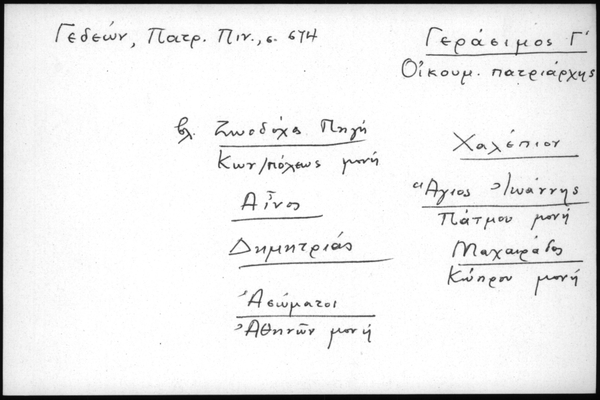 Γεδεών, Πατρ. Πιν., σ. 674
Γεράσιμος Γ'
Οἰκουμ. πατριάρχης
βλ. Ζωοδόχος Πηγή
Κων/πόλεως μονή
Αἶνος
Δημητριάς
Ἀσώματοι
Ἀθηνῶν μονή
Χαλέπιον
Ἅγιος Ἰωάννης
Πάτμου μονή
Μαχαιράδος
Κύπρου μονή